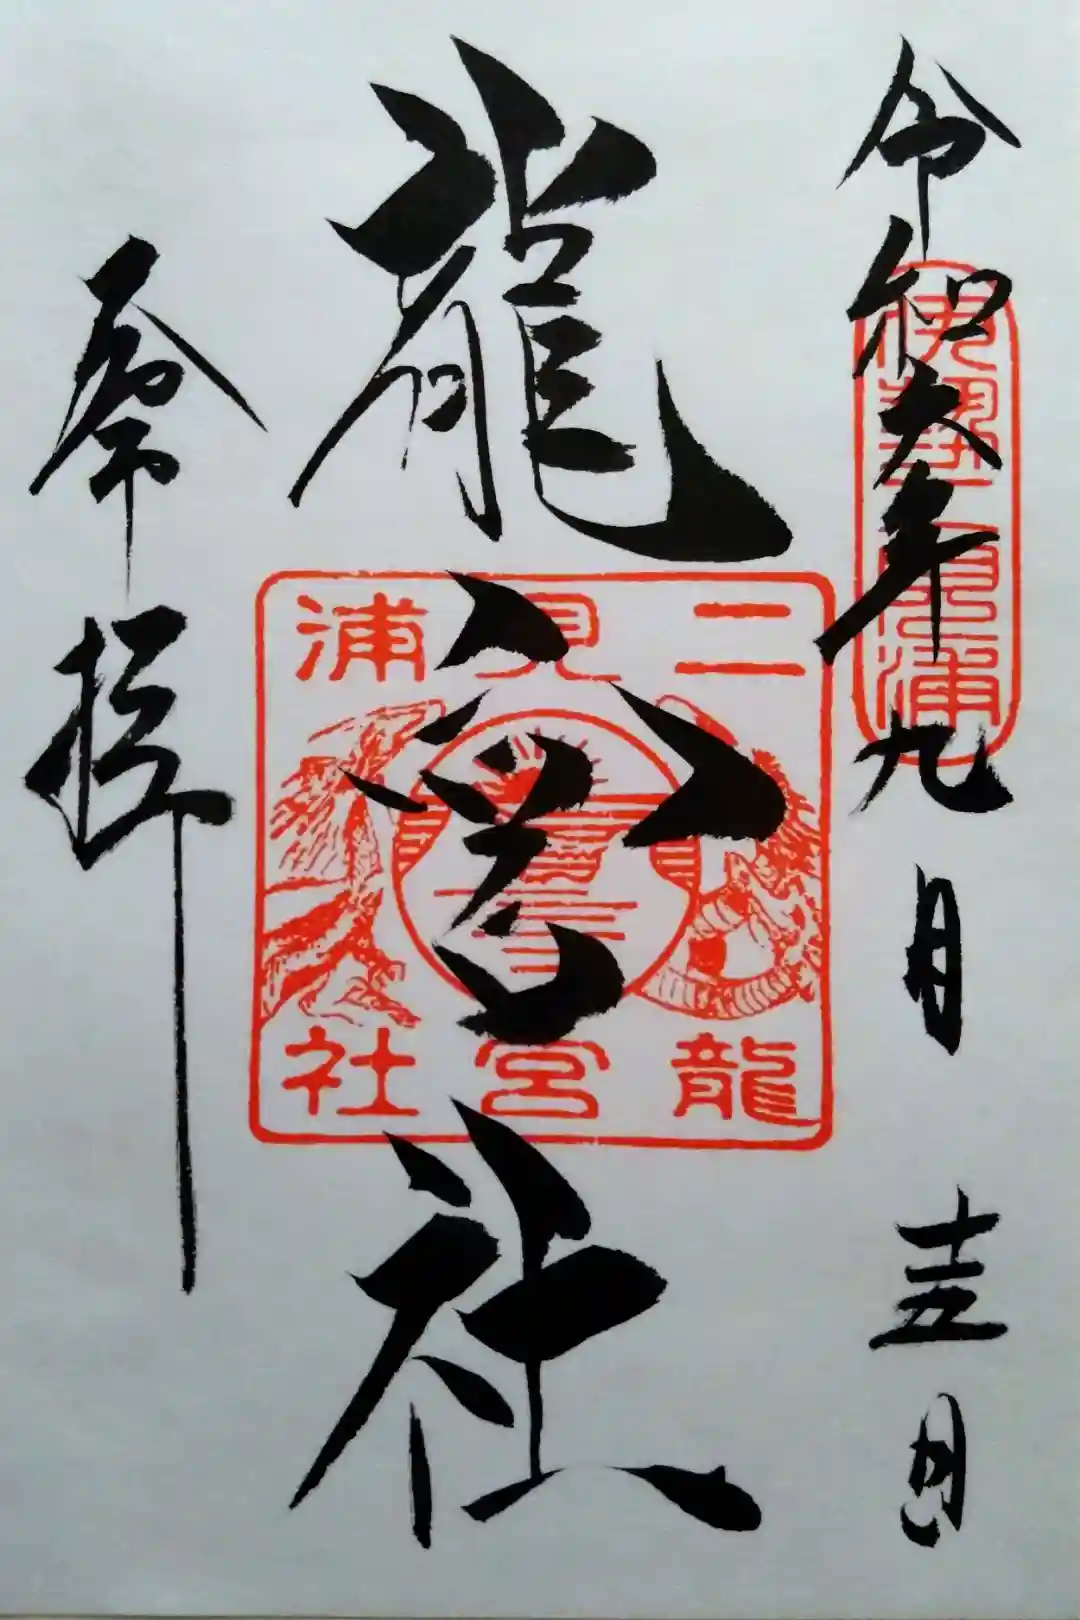 令和六年九月十五日
伊勢二見浦
龍宮社
二見浦
龍宮社
參拝